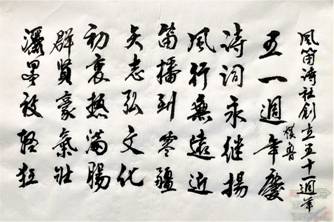 風笛詩社創立五十一週年
五一週年慶
詩詞永繼揚
風行無遠近
笛播到零疆
矢志弘文化
初衷熱滿腸
群賢豪氣壯
墨狂